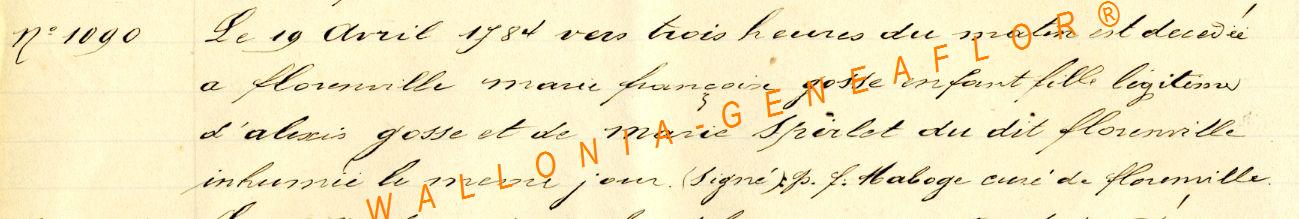 N° 1090 Le 19 Avril 1784 vers trois heures du matin est decedée
a florenville marie françoise gosse enfant fille légitime
d'alexis gosse et de marie Spirlet du dit florenville
inhumée le meme jour. (Signé) p. f. Maboge curé de florenville.
WALLONIA-GENEAFLOR®